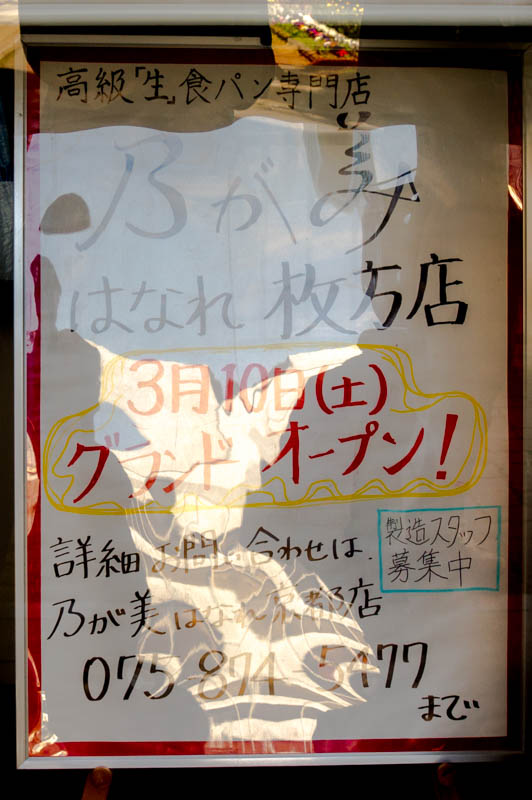 高級「生」食パン専門店
乃が美
はなれ 枚方店
3月10日(土)
グランド オープン!
製造スタッフ
募集中
詳細 お問い合わせは
乃が美はなれ京都店
075-874-5477
まで